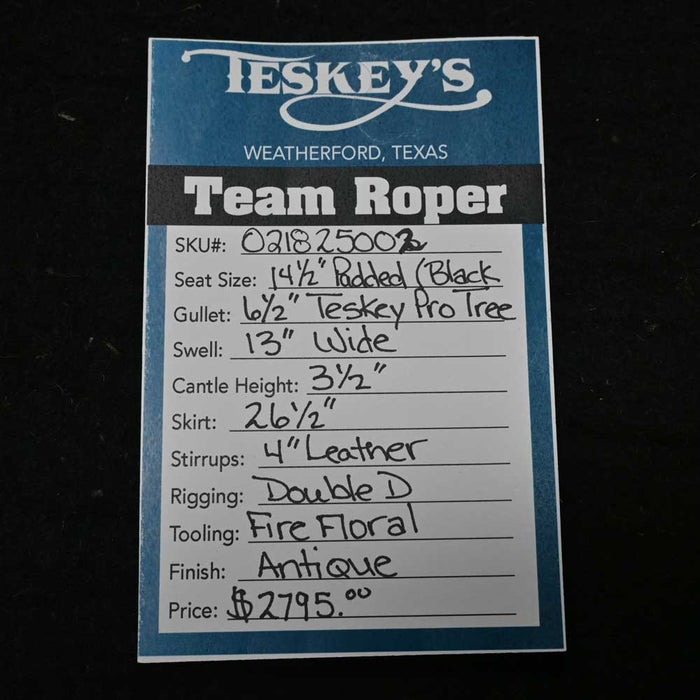 TESKEY'S
WEATHERFORD, TEXAS
Team Roper
SKU#:
Seat Size: 14½" Padded (Black
Gullet: 6½" Teskey Pro Tree
Swell: 13" Wide
Cantle Height: 3½"
Skirt: 26½"
Stirrups: 4" Leather
Rigging: Double D
Tooling: Fire Floral
Finish: Antique
Price: $2795.00